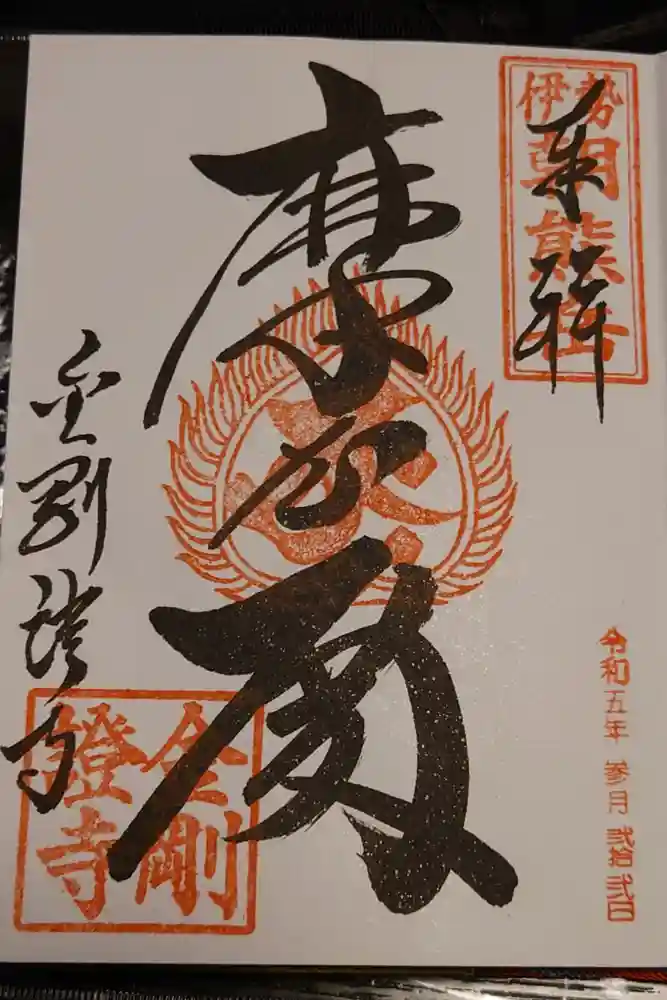 奉拝
伊勢
朝熊岳
摩尼殿
金剛證寺
金剛
證寺
令和五年 参月 弐拾弐日